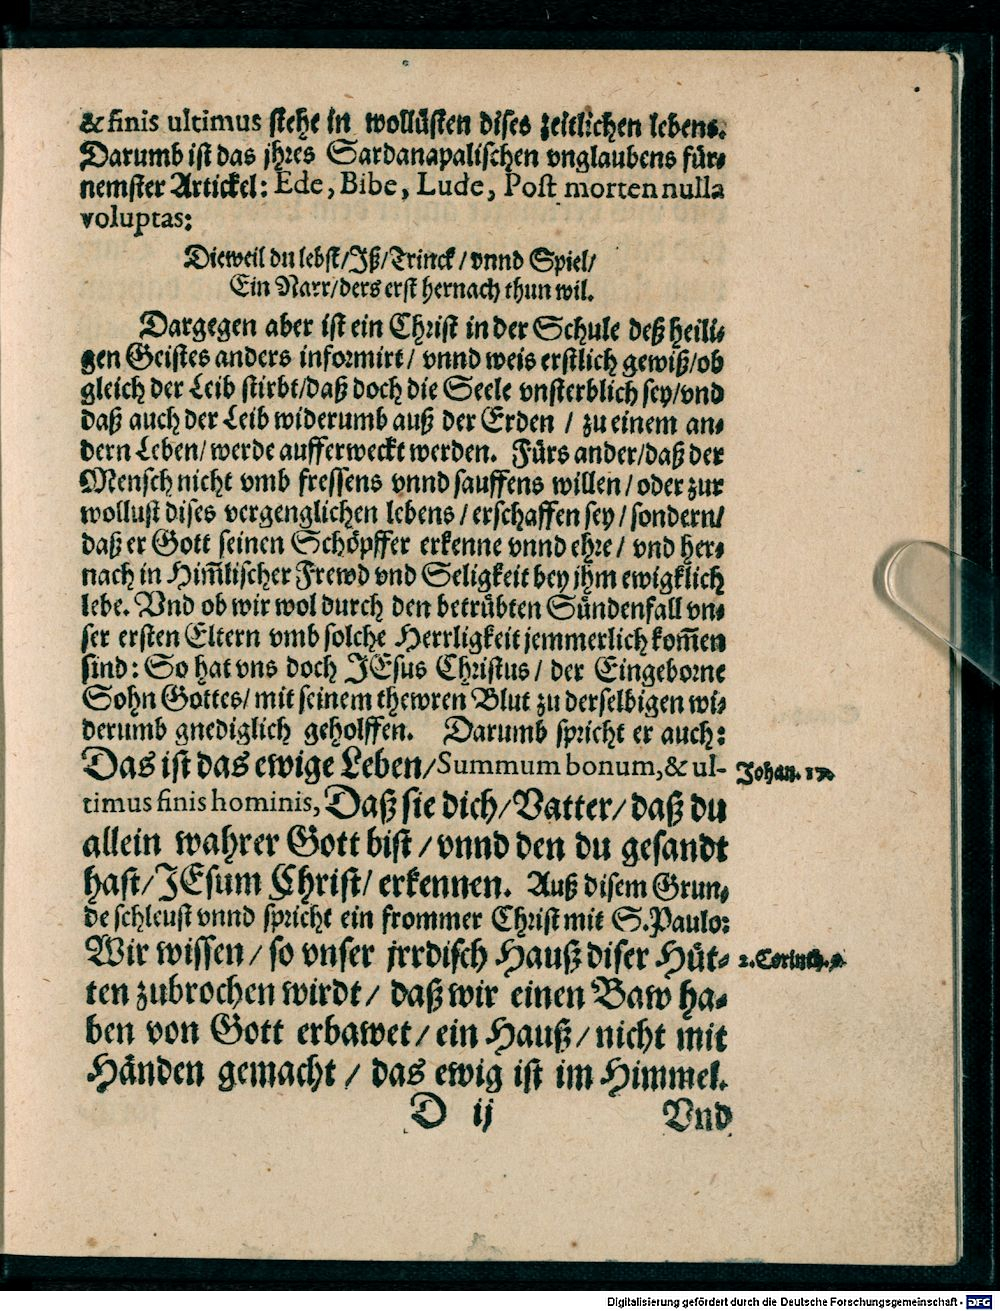 & finis ultimus stehe in wollüsten dises zeitlichen lebens.
Darumb ist das jhres Sardanapalischen vnglaubens für-
nemster Artickel: Ede, Bibe, Lude, Post morten nulla
voluptas:
Dieweil du lebst/Iß/Trinck/vnnd Spiel/
Ein Narr/ders erst hernach thun wil.
Dargegen aber ist ein Christ in der Schule deß heili-
gen Geistes anders informirt/ vnnd weis erstlich gewiß/ob
gleich der Leib stirbt/daß doch die Seele vnsterblich sey/vnd
daß auch der Leib widerumb auß der Erden / zu einem an-
dern Leben/ werde aufferweckt werden. Fürs ander/daß der
Mensch nicht vmb fressens vnnd sauffens willen/ oder zur
wollust dises vergenglichen lebens/ erschaffen sey/ sondern/
daß er Gott seinen Schöpffer erkenne vnnd ehre/ vnd her-
nach in Him̅lischer Frewd vnd Seligkeit bey jhm ewigklich
lebe. Vnd ob wir wol durch den betrübten Sündenfall vn-
ser ersten Eltern vmb solche Herrligkeit jemmerlich kom̅en
sind: So hat vns doch JEsus Christus/ der Eingeborne
Sohn Gottes/ mit seinem thewren Blut zu derselbigen wi-
derumb gnediglich geholffen. Darumb spricht er auch:
Das ist das ewige Leben/Summum bonum, & ul-
Johan. 17.
timus finis hominis, Daß sie dich/Vatter/ daß du
allein wahrer Gott bist/ vnnd den du gesandt
hast/JEsum Christ/ erkennen. Auß disem Grun-
de schleust vnnd spricht ein frommer Christ mit S.Paulo:
Wir wissen/ so vnser jrrdisch Hauß diser Hüt-
2. Corinth.
ten zubrochen wirdt/ daß wir einen Baw ha-
ben von Gott erbawet/ ein Hauß/ nicht mit
Händen gemacht/ das ewig ist im Himmel.
D ij
Vnd
Digitalisierung gefördert durch die Deutsche Forschungsgemeinschaft - DFG